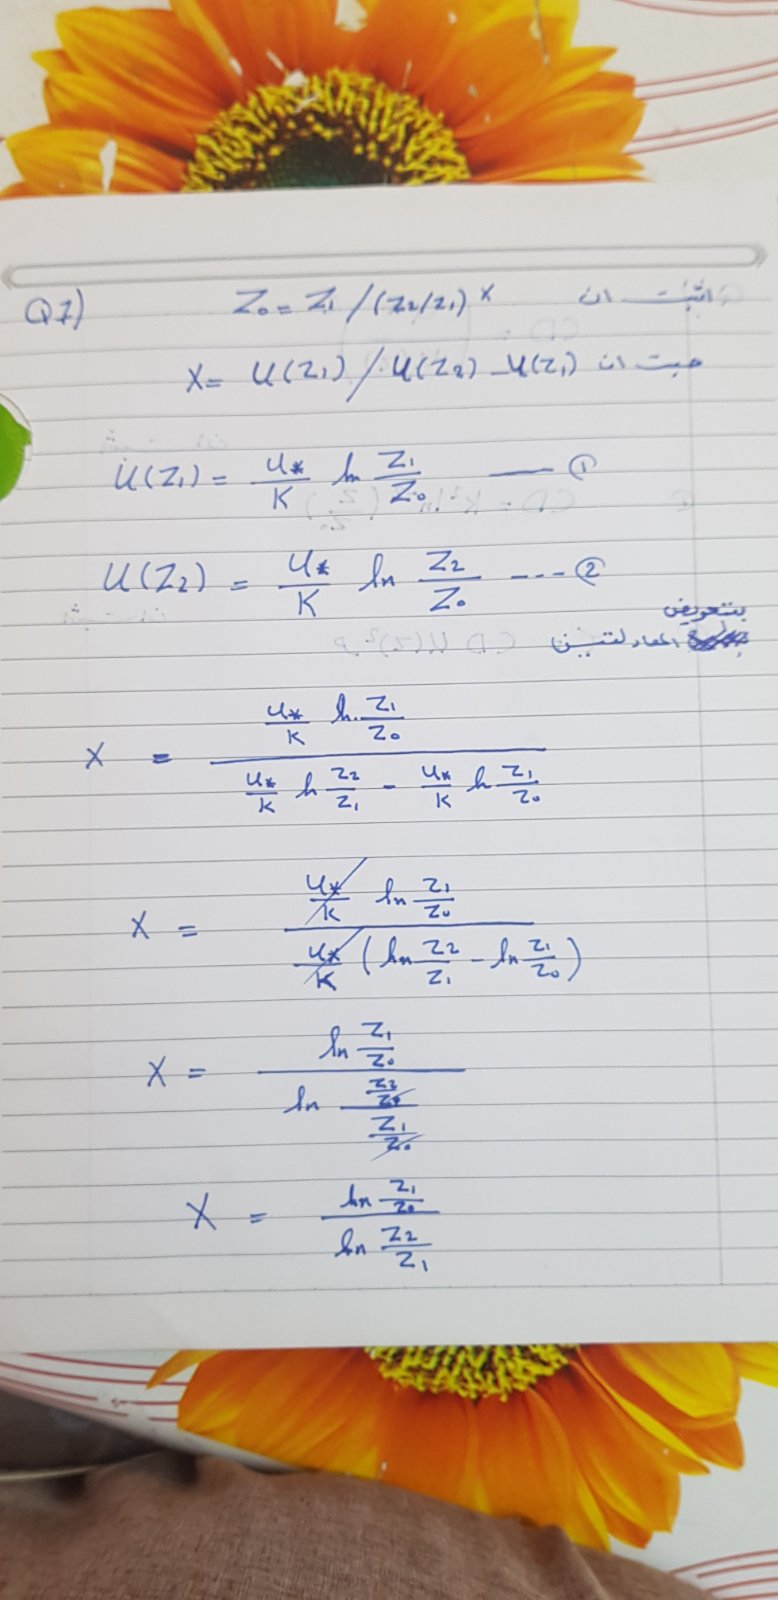 Q1) Z₀ = Z₁ / (Z₂/Z₁)ˣ اثبت ان
X = U(Z₁) / U(Z₂) - U(Z₁) حيث ان
U(Z₁) = U*/K ln Z₁/Z₀ —— ①
U(Z₂) = U*/K ln Z₂/Z₀ ---- ②
بتعويض
المعادلتين
X = (U*/K ln Z₁/Z₀) / (U*/K ln Z₂/Z₁ - U*/K ln Z₁/Z₀)
X = (U*/K ln Z₁/Z₀) / (U*/K (ln Z₂/Z₁ - ln Z₁/Z₀))
X = (ln Z₁/Z₀) / (ln (Z₂/Z₀)/(Z₁/Z₀))
X = (ln Z₁/Z₀) / (ln Z₂/Z₁)